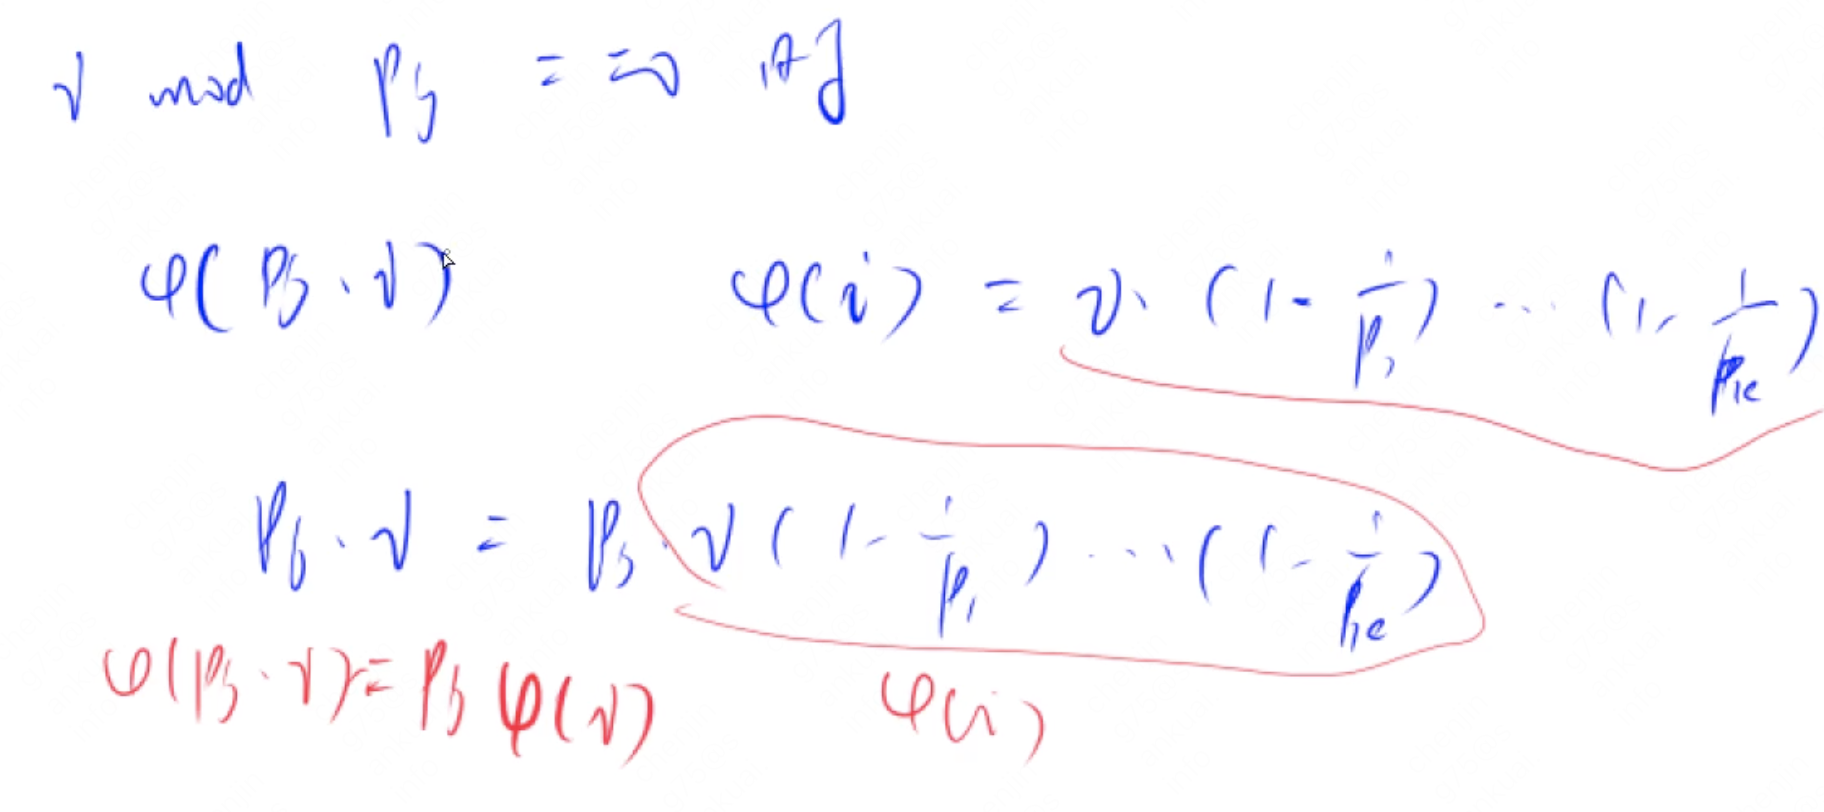 i mod Pj == 0 时
φ(Pj · i) φ(i) = i · (1 - 1/P1) ... (1 - 1/Pk)
Pj · i = Pj · i (1 - 1/P1) ... (1 - 1/Pk)
φ(Pj · i) = Pj φ(i) φ(i)